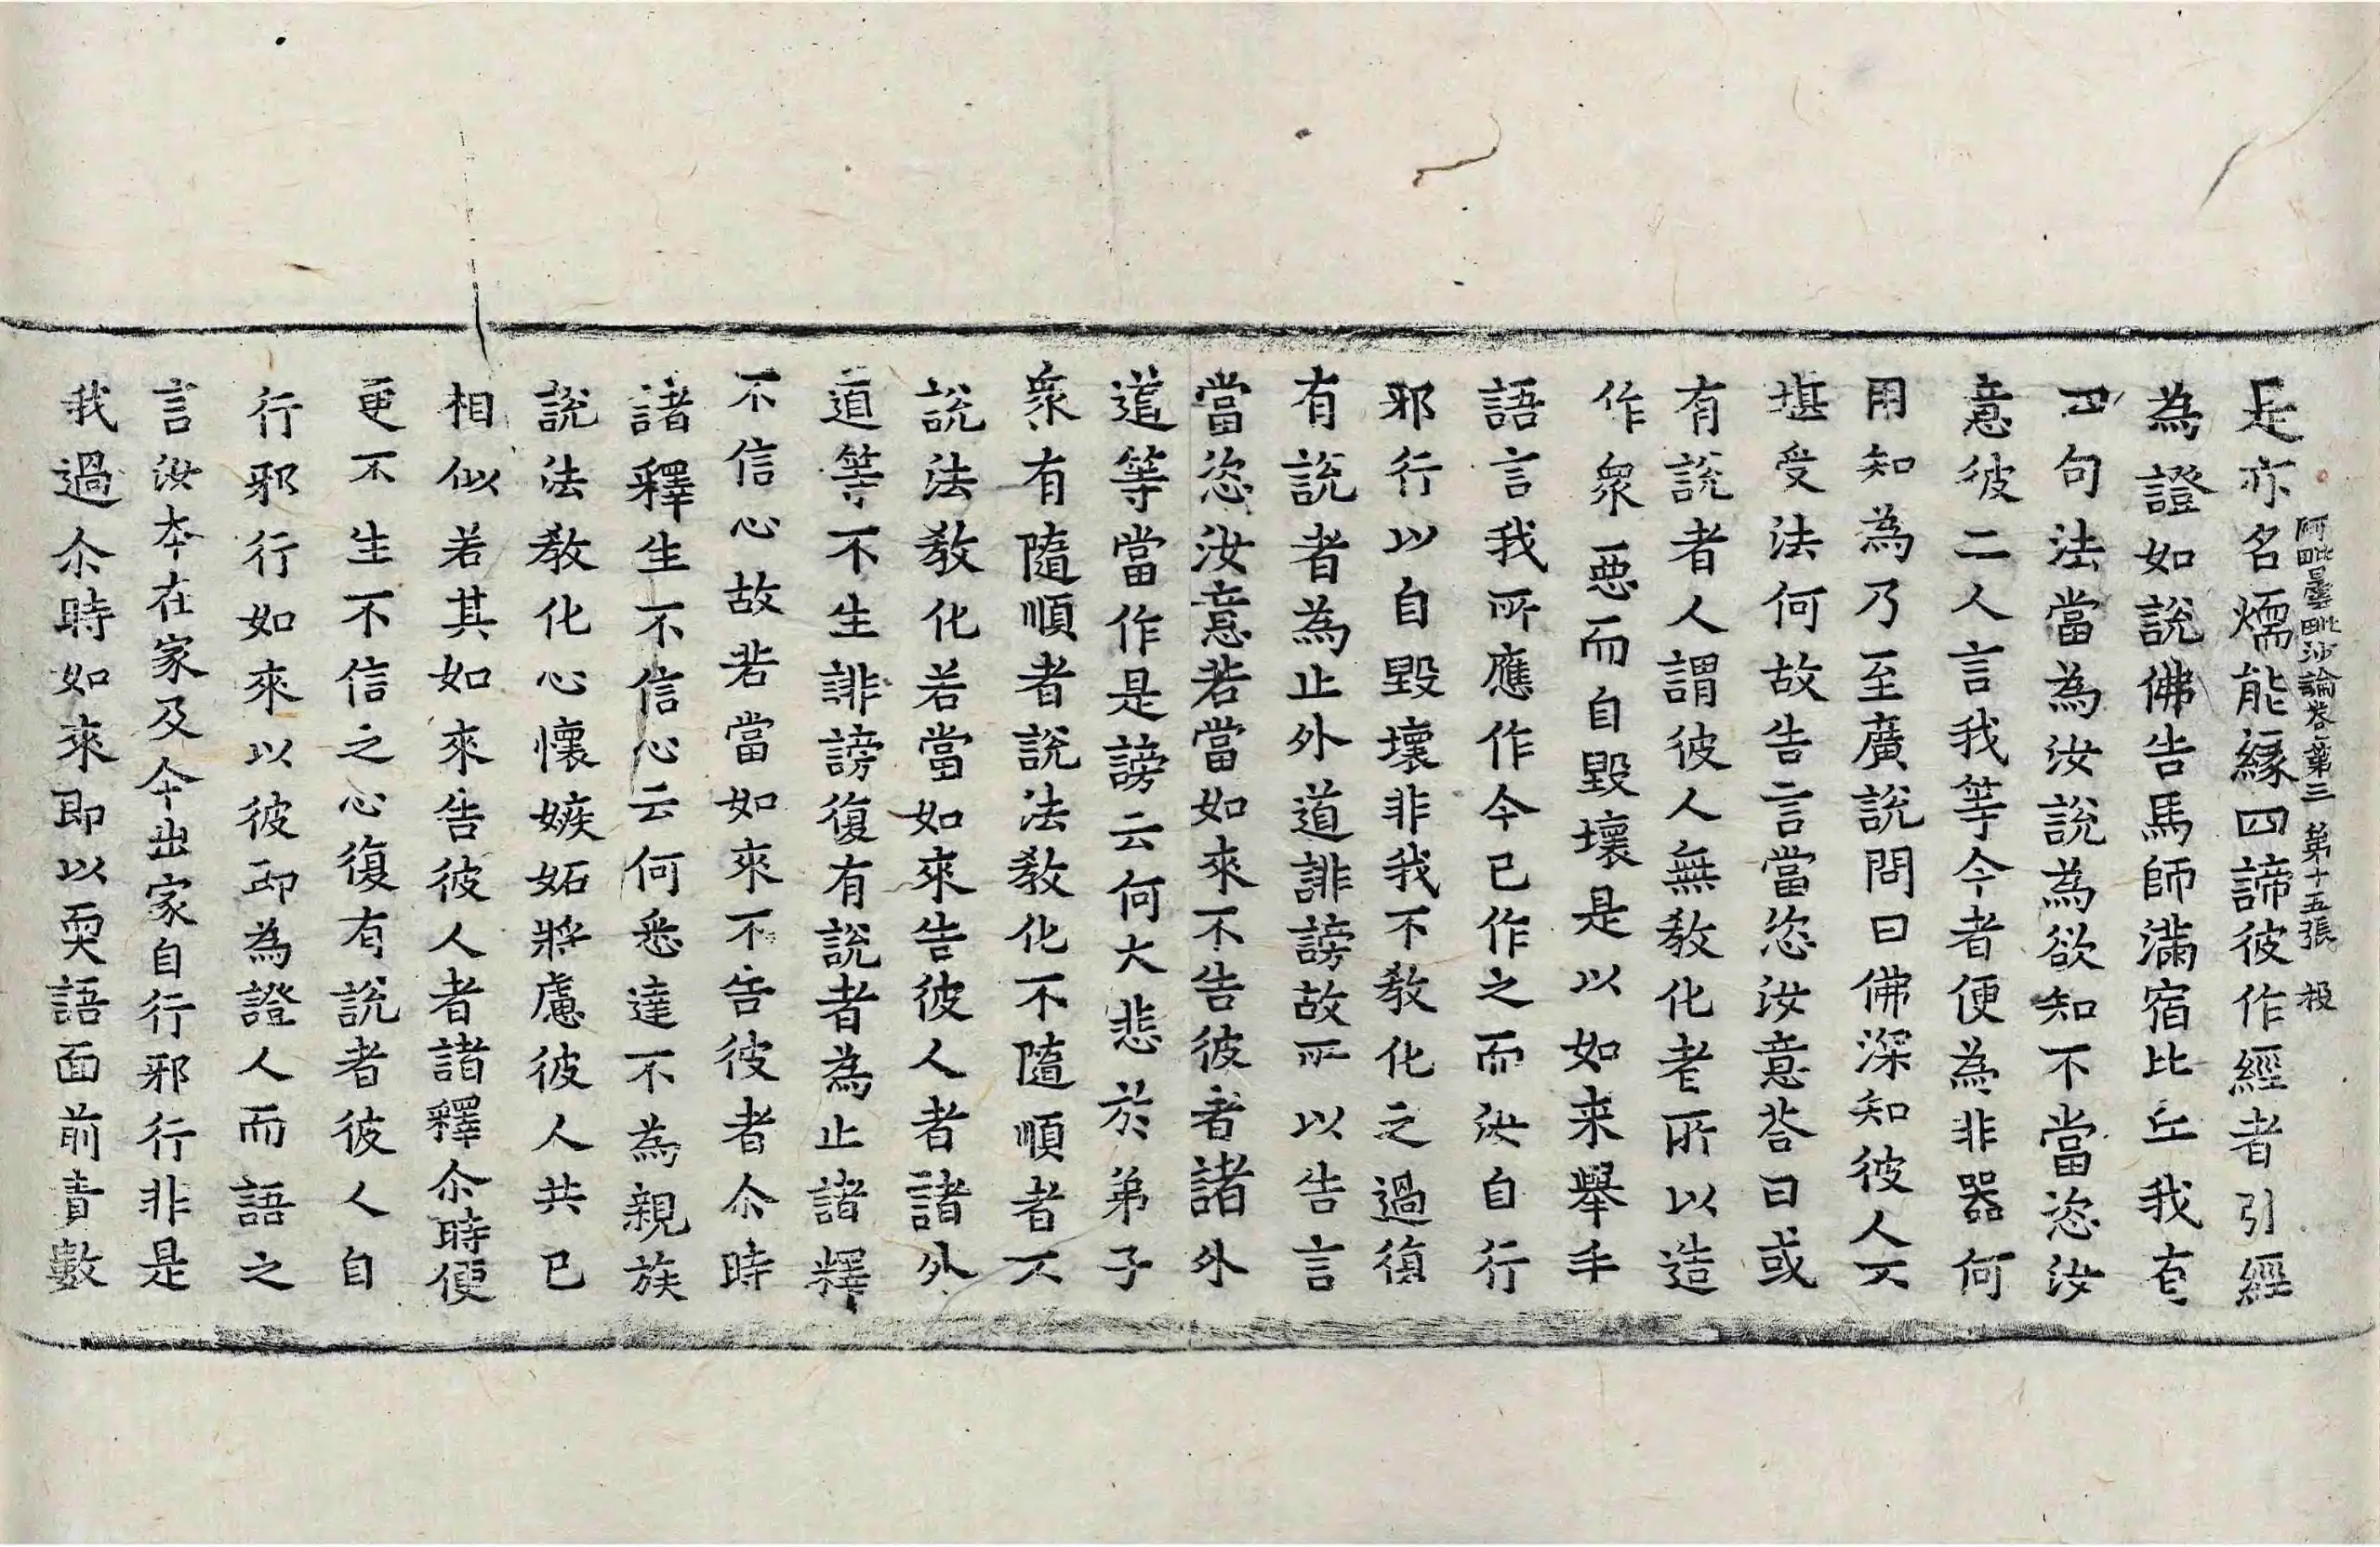 阿毗曇毗沙論卷第三　第十五張　投
是亦名煗能緣四諦彼作經者引經
為證如說佛告馬師滿宿比丘我有
四句法當為汝說為欲知不當恣汝
意彼二人言我等今者便為非器何
用知為乃至廣說問曰佛深知彼人不
堪受法何故告言當恣汝意荅曰或
有說者人謂彼人無教化者所以造
作衆惡而自毀壞是以如来舉手
語言我所應作今已作之而汝自行
邪行以自毀壞非我不教化之過復
有說者為止外道誹謗故所以告言
當恣汝意若當如來不告彼者諸外
道等當作是謗云何大悲於弟子
衆有隨順者說法教化不隨順者不
說法教化若當如來告彼人者諸外
道等不生誹謗復有說者為止諸釋
不信心故若當如來不告彼者尒時
諸釋生不信心云何悉達不為親族
說法教化心懷嫉妬將慮彼人共已
相似若其如來告彼人者諸釋尒時便
更不生不信之心復有說者彼人自
行邪行如來以彼即為證人而語之
言汝本在家及今出家自行邪行非是
我過尒時如來即以耎語面前責數